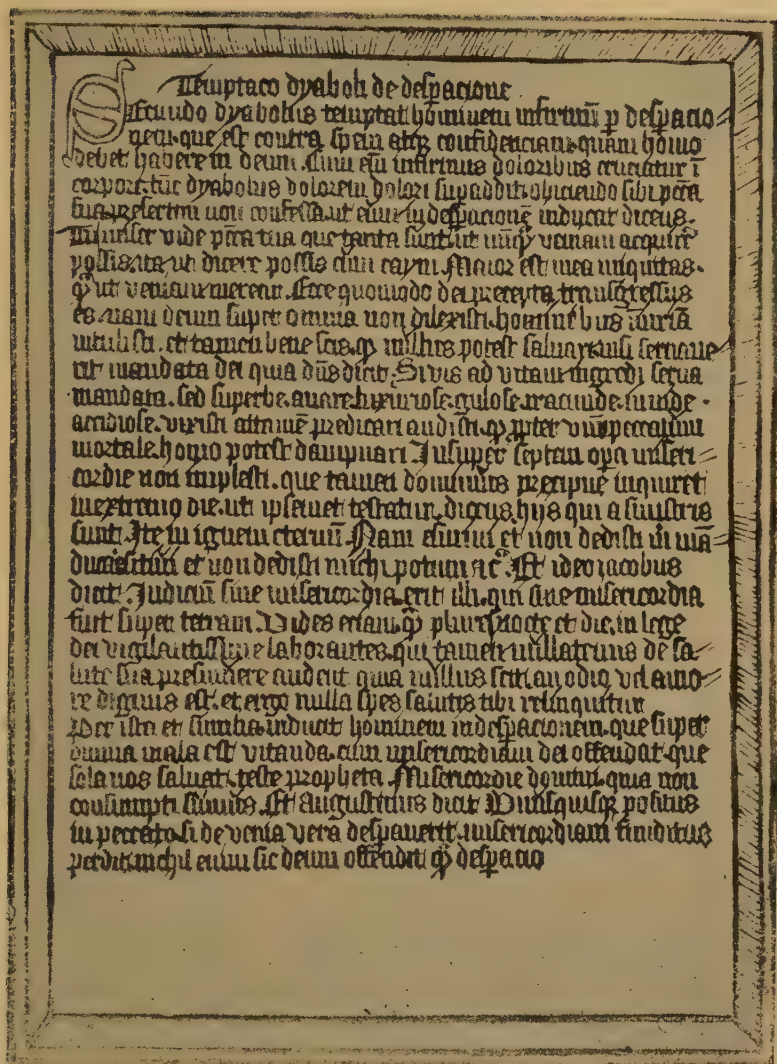 Temptaco dyaboli de desperacione
Secundo dyabolus temptat hominem infirmum per desperacio=
nem. que est contra spem atque confidenciam quam homo
debet habere in deum. Cum enim infirmus doloribus cruciatur in
corpore. tunc dyabolus dolorem dolori superaddit obiciendo sibi peccata
sua presertim non confessa. ut eum in desperacionem inducat dicens.
Tu miser vide peccata tua que tanta sunt. ut nunquam veniam acquirere
possis. ita ut dicere possis cum cayn. Maior est mea iniquitas.
quam ut veniam merear. Ecce quomodo dei precepta transgressus
es. nam deum super omnia non dilexisti. hominibus iniuriam
intulisti. et tamen bene scis. quod nullus potest saluari. nisi seruaue=
rit mandata dei quia dominus dicit. Si vis ad vitam ingredi serua
mandata. sed superbe. auare. luxuriose. gulose. iracunde. inuide.
accidiose. vixisti attamen predicari audisti. quod propter vnum peccatum
mortale. homo potest dampnari Insuper septem opera miseri=
cordie non implesti. que tamen dominus precipue inquiret
in extremo die. uti ipsemet testatur. dicens. hijs qui a sinistris
sunt. Ite in ignem eternum. Nam esuriui et non dedisti mihi man=
ducare. sitiui et non dedisti michi potum etc. Et ideo iacobus
dicit. Judicium sine misericordia. erit illi. qui sine misericordia
fuit super terram. Vides eciam quam plures nocte et die. in lege
dei vigilantissime laborantes. qui tamen nullatenus de sa=
lute sua presumere audent quia nullus scit. an odio vel amo=
re dignus est. et ergo nulla spes salutis tibi relinquitur
Per ista et similia. inducit hominem in desperacionem. que super
omnia mala est vitanda. cum misericordiam dei offendat. que
sola nos saluat. teste propheta. Misericordie domini. quia non
consumpti sumus. Et Augustinus dicit Vnusquisque positus
in peccato. si de venia vera desperauerit. misericordiam funditus
perdit. nichil enim sic deum offendit quam desperacio